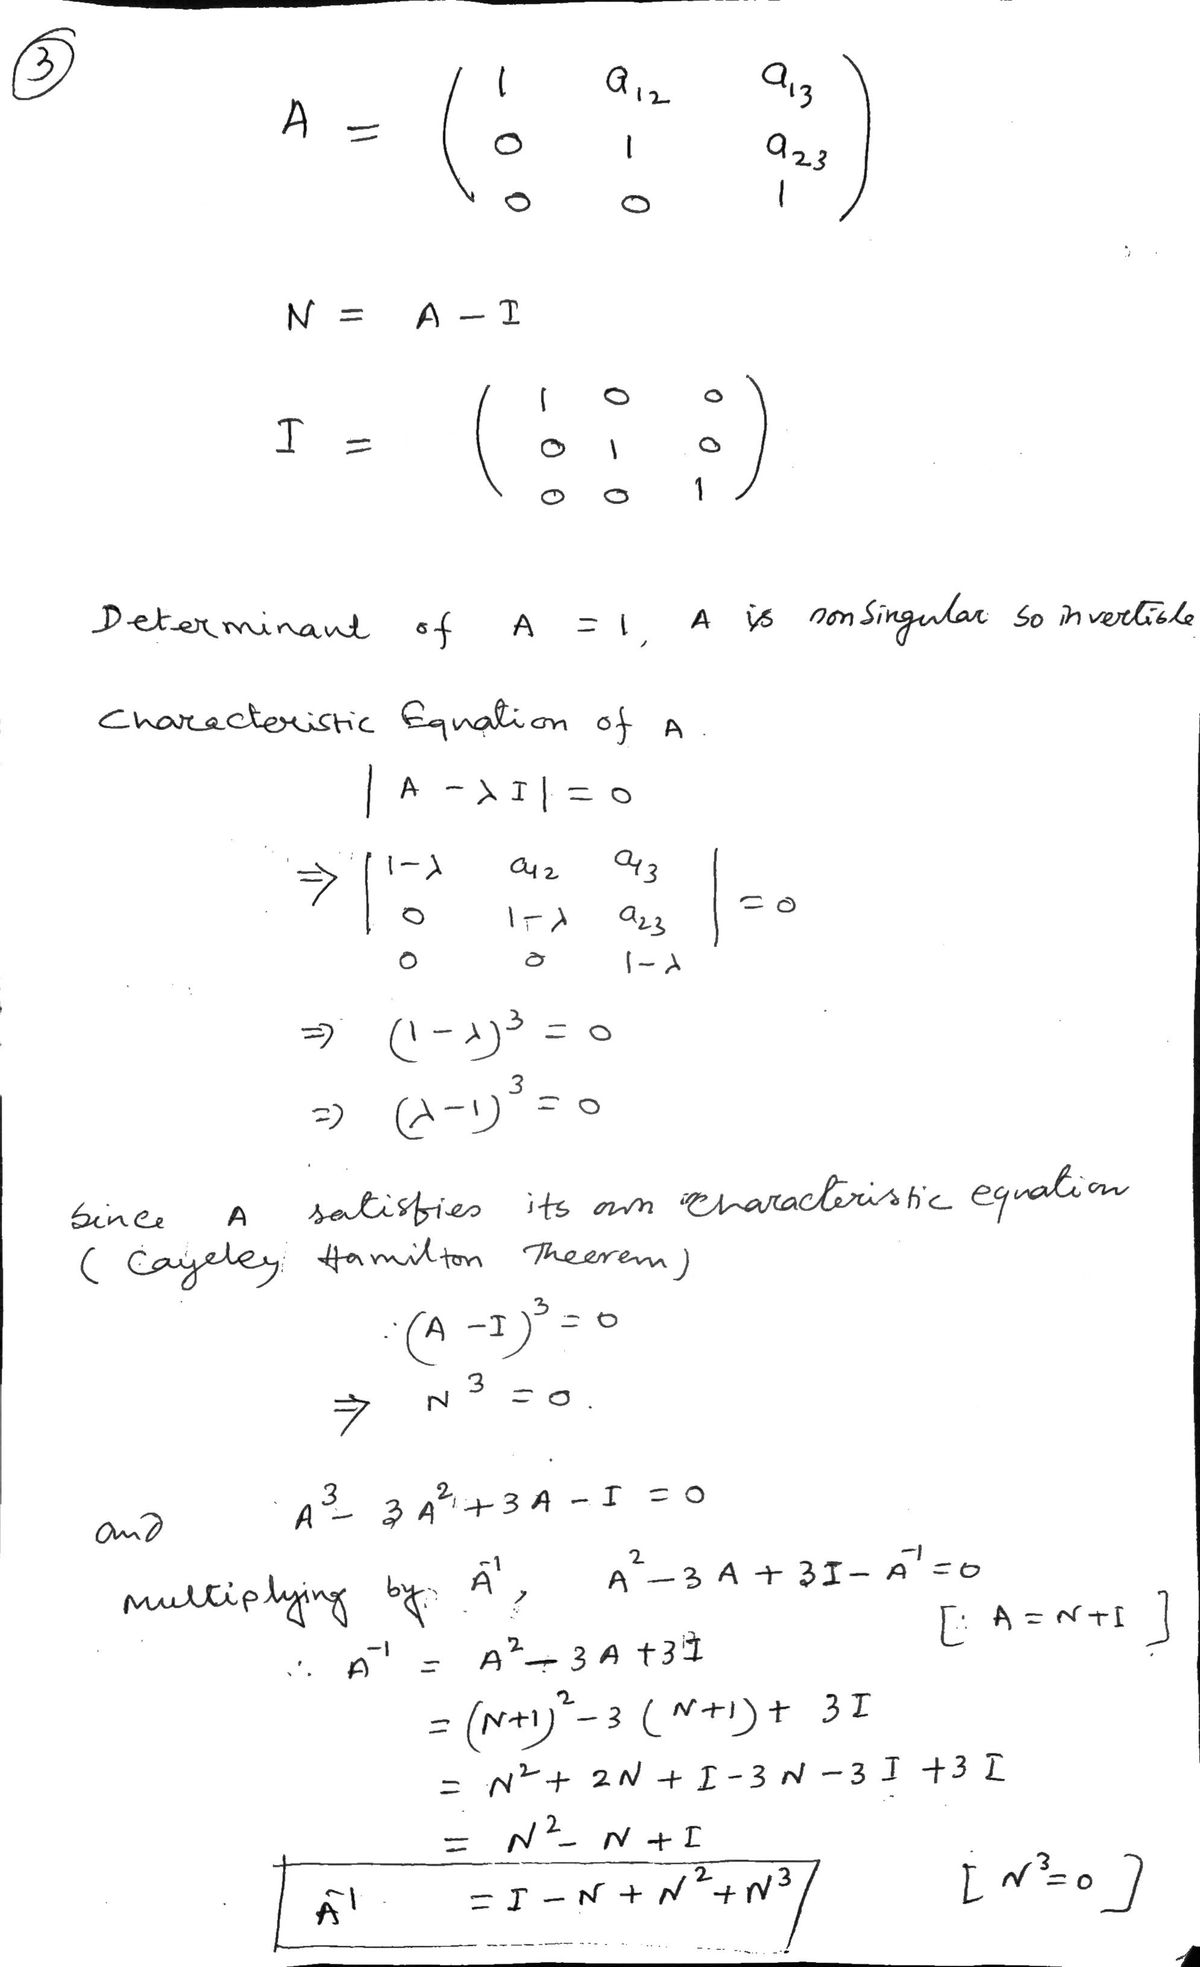 3
A = ( 1 a12 a13
0 1 a23
0 0 1 )
N = A - I
I = ( 1 0 0
0 1 0
0 0 1 )
Determinant of A = 1, A is nonSingular so invertible
Characteristic Equation of A.
| A - λI | = 0
⇒ | 1-λ a12 a13
0 1-λ a23 | = 0
0 0 1-λ
⇒ (1-λ)³ = 0
⇒ (λ-1)³ = 0
Since A satisfies its own characteristic equation
( Cayeley Hamilton Theerem)
∴ (A - I)³ = 0
⇒ N³ = 0.
and A³ - 3A² + 3A - I = 0
multiplying by A⁻¹, A² - 3A + 3I - A⁻¹ = 0
[∵ A = N+I ]
∴ A⁻¹ = A² - 3A + 3I
= (N+1)² - 3(N+1) + 3I
= N² + 2N + I - 3N - 3I + 3I
= N² - N + I
A⁻¹ = I - N + N² + N³ [N³=0]